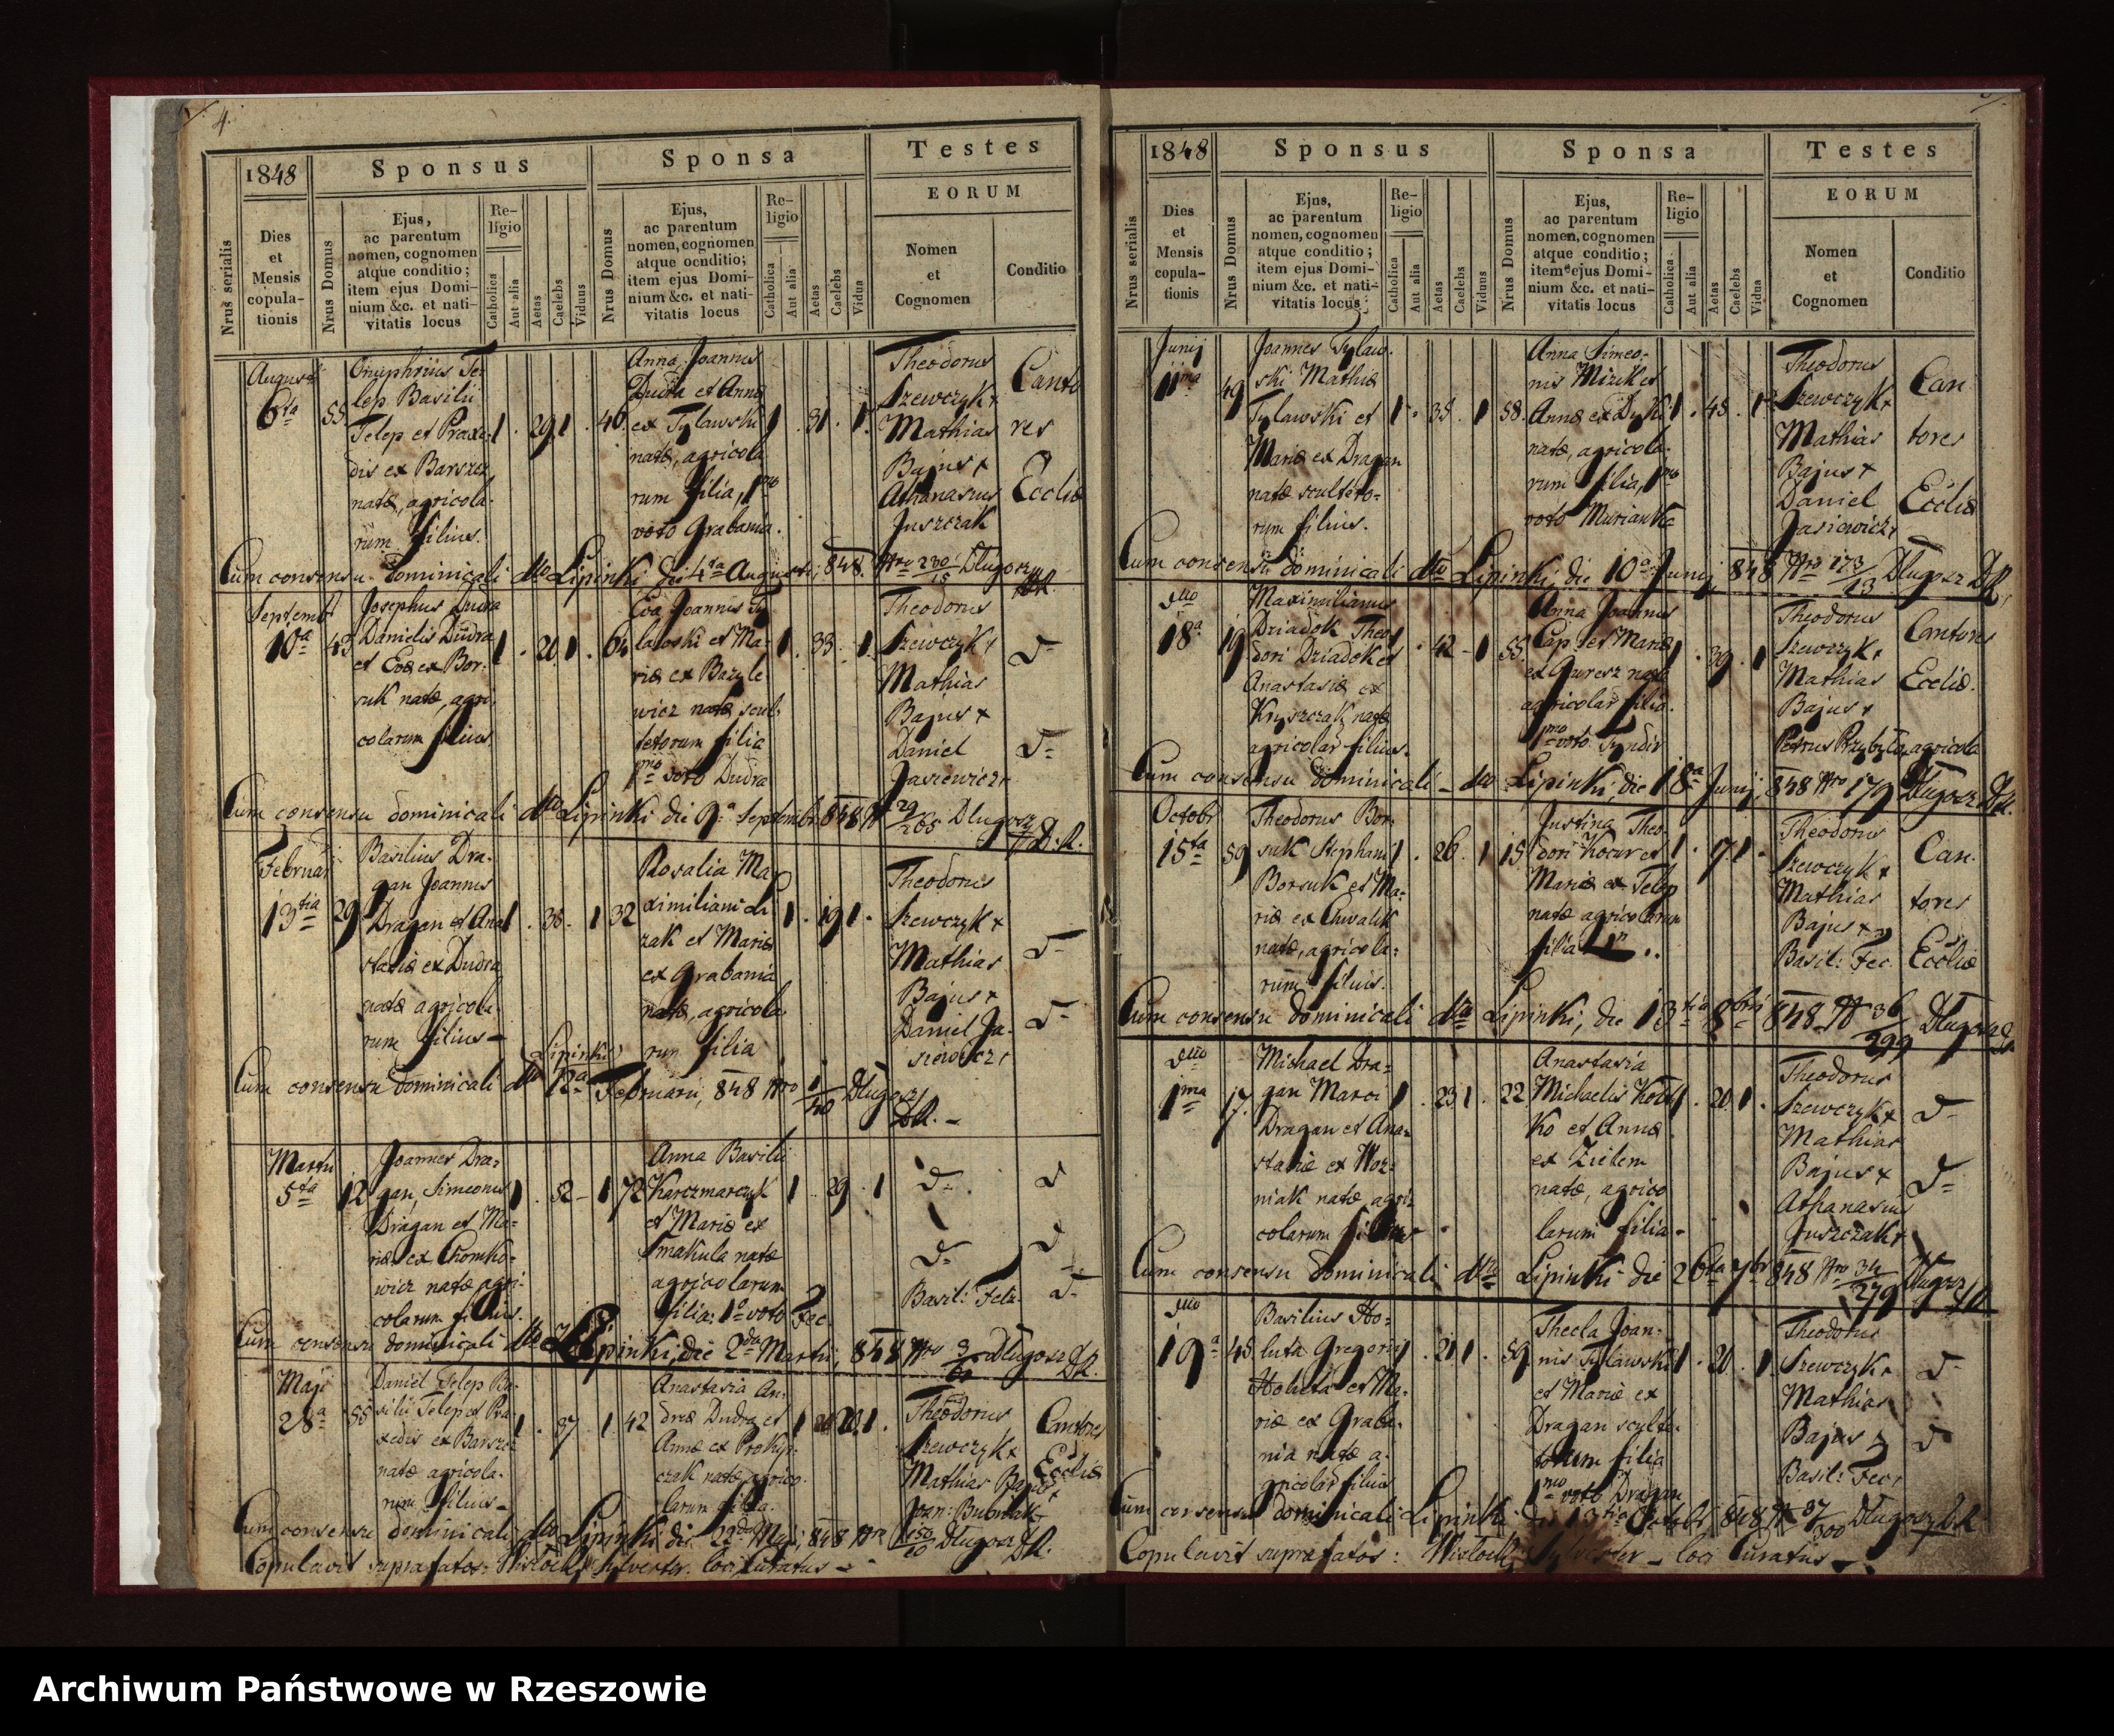 4.
1848
Sponsus
Sponsa
Testes
EORUM
Nrus serialis
Dies
et
Mensis
copula-
tionis
Nrus Domus
Ejus,
ac parentum
nomen, cognomen
atque conditio;
item ejus Domi-
nium &c. et nati-
vitatis locus
Re-
ligio
Catholica
Aut alia
Aetas
Caelebs
Viduus
Nrus Domus
Ejus,
ac parentum
nomen, cognomen
atque ocnditio;
item ejus Domi-
nium &c. et nati-
vitatis locus
Re-
ligio
Catholica
Aut alia
Aetas
Caelebs
Vidua
Nomen
et
Cognomen
Conditio
August
6ta
55
Onuphrius Te-
lep Basilii
Telep et Praxe-
dis ex Barszcz
natæ, agricola-
rum filius.
1 . 29 1 .
46.
Anna Joannis
Dudra et Annæ
ex Tylawski
natæ, agricola
rum filia, 1mo
voto Grabania.
1 . 31 . 1
Theodorus
Szewczyk +
Mathias
Bajus +
Athanasius
Juszczak
Canto
res
Eccliæ
Cum consensu dominicali dto Lipinki die 4ta Augusti, 848. Nro 230/15 Długosz
Septemb
10a
43
Josephus Dudra
Danielis Dudra
et Evæ ex Bor-
suk natæ, agri
colarum filius
1 . 20 1 .
64
Eva Joannis Ty
lawski et Ma-
riæ ex Bazyle
wicz natæ scul-
tetorum filia
1mo voto Dudra
1 . 33 . 1.
Theodorus
Szewczyk +
Mathias
Bajus +
Daniel
Jasiewicz +
Cum consensu dominicali dto Lipinki die 9a Septembr 848 N 29/265 Długosz
Februar
13tia
29
Basilius Dra-
gan Joannis
Dragan et Ana
stasiæ ex Dudra
natæ agricola
rum filius -
1 . 38 . 1
32
Rosalia Ma
ximiliani
zak et Mariæ
ex Grabania
natæ, agricola
rum filia
1 . 19 1 .
Theodorus
Szewczyk +
Mathias
Bajus +
Daniel Ja-
siewicz +
Cum consensu dominicali dto (Lipinki) 12a Februarii, 848 Nro 1/40 Długosz
Martii
5ta
12
Joannes Dra-
gan, Simeonis
Dragan et Ma-
riæ ex Chomko-
wicz natæ agri-
colarum filius.
1 . 52 - 1
72
Anna Basilii
Karczmarczyk
et Mariæ ex
Smakula natæ
agricolarum
filia: 1o voto Fec
1 . 29 . 1
Basil: Fec
Cum consensu dominicali dto Lipinki, die 2da Martii, 848 Nro Długosz
Maji
28a
55
Daniel Telep Ba-
silii Telep et Pra-
xedis ex Barszcz
natæ agricola-
rum filius -
1 . 37 . 1
42
Anastasia An-
dreæ Dudra et
Annæ ex Prokip-
czak natæ, agrico-
larum filia.
1 . 20 1 .
Theodorus
Szewczyk +
Mathias Bajus +
Joan: Bubniak
Cantores
Eccliæ
Cum consensu dominicali dto Lipinki die 22da Maji 848 Nro 150/10 Długosz
Copulavit suprafatos: Wislocki Sylvester. loci Curatus -
1848
Sponsus
Sponsa
Testes
EORUM
Nrus serialis
Dies
et
Mensis
copula-
tionis
Nrus Domus
Ejus,
ac parentum
nomen, cognomen
atque conditio;
item ejus Domi-
nium &c. et nati-
vitatis locus
Re-
ligio
Catholica
Aut alia
Aetas
Caelebs
Viduus
Nrus Domus
Ejus,
ac parentum
nomen, cognomen
atque conditio;
item ejus Domi-
nium &c. et nati-
vitatis locus
Re-
ligio
Catholica
Aut alia
Aetas
Caelebs
Vidua
Nomen
et
Cognomen
Conditio
Junij
11ma
49
Joannes Tylaw-
ski Mathiæ
Tylawski et
Mariæ ex Dragan
natæ sculteto-
rum filius.
1 . 35 . 1
58.
Anna Simeo-
nis Mizik et
Annæ ex Dyk
natæ, agricola-
rum filia, 1mo
voto Murianka
1 . 45 . 1
Theodorus
Szewczyk +
Mathias
Bajus +
Daniel
Jasiewicz +
Can
tores
Eccliæ
Cum consensu dominicali dto Lipinki, die 10a Junij 848 Nro 173/13 Długosz
18a
19
Maximilianus
Dziadok Theo
dori Dziadok et
Anastasiæ ex
Kryszczak natæ
agricolar filius.
42 - 1
55.
Anna Joannis
Cap et Mariæ
ex Gurcsz natæ
agricolar filia.
1mo voto Syndir
1 . 39 . 1
Theodorus
Szewczyk +
Mathias
Bajus +
Petrus Przybyła, agricola
Cantores
Eccliæ.
Cum consensu dominicali - dto Lipinki, die 18a Junij, 848 Nro 179 Długosz
Octobr
15ta
59
Theodorus Bor-
suk Stephani
Borsuk et Ma-
riæ ex Chwalik
natæ, agricola-
rum filius.
1 . 26 . 1
15
Justina Theo-
dori Kocur et
Mariæ ex Telep
natæ agricolarum
filia
Theodorus
Szewczyk +
Mathias
Bajus +
Basil: Fec.
Can-
tores
Eccliæ
Cum consensu dominicali dto Lipinki, die 13tia 8bris 848 N 36/299 Długosz
1ma
17.
Michael Dra-
gan Marci
Dragan et Ana-
stasiæ ex Woz-
niak natæ agri-
colarum filius
1 . 23 1 .
22.
Anastasia
Michaelis
Ko et Annæ
ex Zielem
natæ, agrico
larum filia -
1 . 20 1 .
Theodorus
Szewczyk +
Mathias
Bajus +
Athanasius
Juszczak +
Cum consensu dominicali dto Lipinki die 26ta 7br 848 Nro 34/279 Długosz
19a
45
Basilius Ho-
luta Gregorii
Holuta et Ma-
riæ ex Graba-
nia natæ a-
gricolar filius
1 . 21 1 .
59
Thecla Joan-
nis Tylawski
et Mariæ ex
Dragan sculte-
torum filia
1mo voto Dragan
1 . 20 . 1
Theodorus
Szewczyk +
Mathias
Bajus
Basil: Fec +
Cum consensu dominicali Lipinki die 13tia Octobr 848 N 37/300 Długosz
Copulavit suprafatos: Wislocki Sylvester - loci Curatus -
Archiwum Państwowe w Rzeszowie